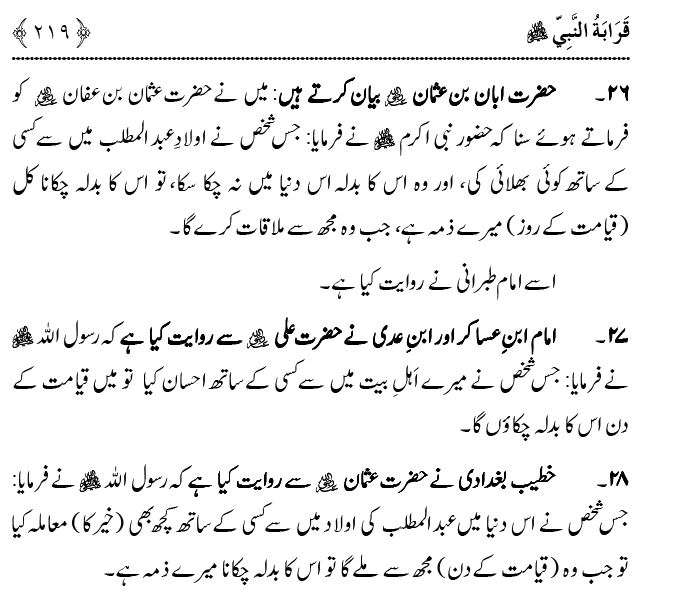 قَرَابَةُ النَّبِيِّ ﷺ ﴿٢١٩﴾
۲۶۔ حضرت ابان بن عثمان رضی اللہ عنہ بیان کرتے ہیں: میں نے حضرت عثمان بن عفان رضی اللہ عنہ کو
فرماتے ہوئے سنا کہ حضور نبی اکرم ﷺ نے فرمایا: جس شخص نے اولادِ عبد المطلب میں سے کسی
کے ساتھ کوئی بھلائی کی، اور وہ اس کا بدلہ اس دنیا میں نہ چکا سکا، تو اس کا بدلہ چکانا کل
(قیامت کے روز) میرے ذمہ ہے، جب وہ مجھ سے ملاقات کرے گا۔
اسے امام طبرانی نے روایت کیا ہے۔
۲۷۔ امام ابنِ عساکر اور ابنِ عدی نے حضرت علی رضی اللہ عنہ سے روایت کیا ہے کہ رسول اللہ ﷺ
نے فرمایا: جس شخص نے میرے اَہلِ بیت میں سے کسی کے ساتھ احسان کیا تو میں قیامت کے
دن اس کا بدلہ چکاؤں گا۔
۲۸۔ خطیب بغدادی نے حضرت عثمان رضی اللہ عنہ سے روایت کیا ہے کہ رسول اللہ ﷺ نے فرمایا:
جس شخص نے اس دنیا میں عبد المطلب کی اولاد میں سے کسی کے ساتھ کچھ بھی (خیر کا) معاملہ کیا
تو جب وہ (قیامت کے دن) مجھ سے ملے گا تو اس کا بدلہ چکانا میرے ذمہ ہے۔